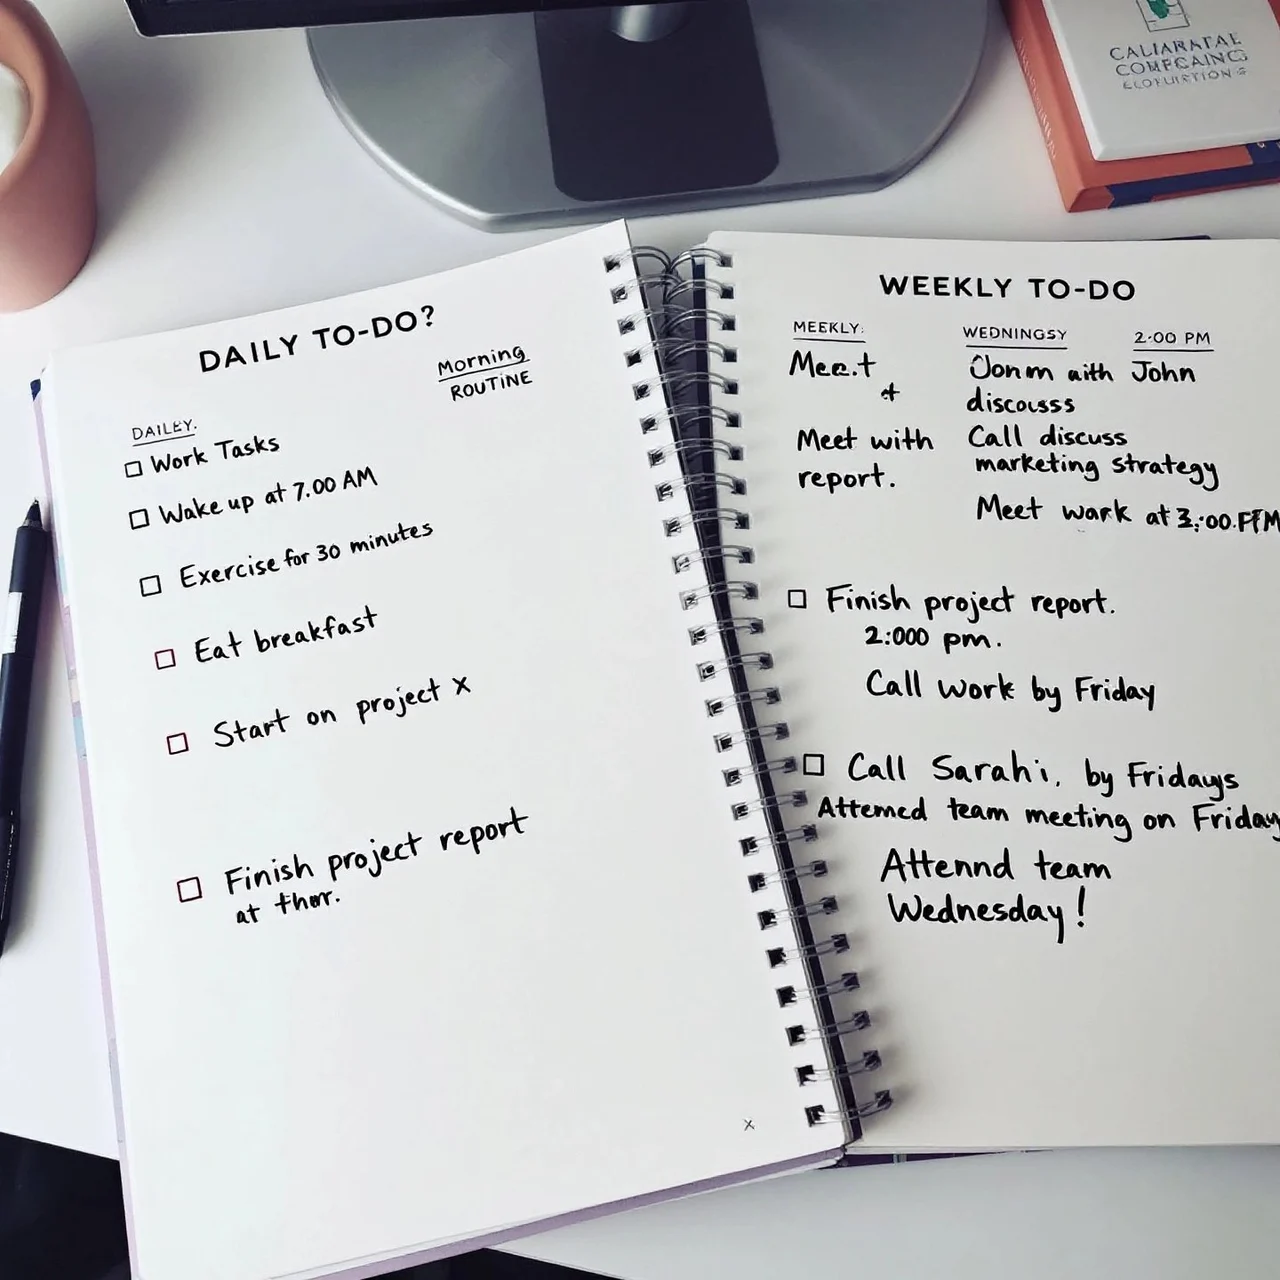 CALIARATAE
COMPCAINCS
DAILY TO-DO?
Morning
ROUTINE
DAILEY.
Work Tasks
Wake up at 7.00 AM
Exercise for 30 minutes
Eat breakfast
Start on project x
Finish project report
at thor.
x
WEEKLY TO-DO
MEEKLY: WEDNINGSY 2:00 PM
Mee.t Jonm aith John
discousss
Meet with Call discuss
report. marketing strategy
Meet wark at
Finish project report.
2:000 pm.
Call work by Friday
Call Sarah'i, by Fridays
Attemed team meeting on Friday
Attennd team
Wednesday!